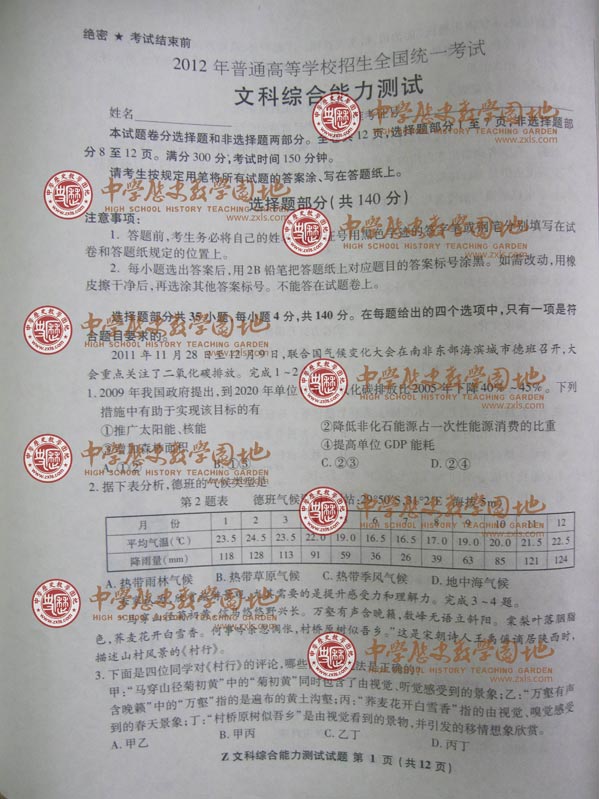 绝密 ★ 考试结束前
2012 年普通高等学校招生全国统一考试
文科综合能力测试
姓名
本试题卷分选择题和非选择题两部分。全卷共12页,选择题部分1至7页,非选择题部
分8至12页。满分300分,考试时间150分钟。
请考生按规定用笔将所有试题的答案涂、写在答题纸上。
选择题部分(共140分)
注意事项:
1. 答题前,考生务必将自己的姓名、准考证号用黑色字迹的签字笔或钢笔分别填写在试
卷和答题纸规定的位置上。
2. 每小题选出答案后,用2B铅笔把答题纸上对应题目的答案标号涂黑。如需改动,用橡
皮擦干净后,再选涂其他答案标号。不能答在试题卷上。
选择题部分共35小题,每小题4分,共140分。在每题给出的四个选项中,只有一项是符
合题目要求的。
2011年11月28日至12月9日,联合国气候变化大会在南非东部海滨城市德班召开,大
会重点关注了二氧化碳排放。完成1~2
1. 2009年我国政府提出,到2020年单位 碳排放比2005年下降40%~45%。下列
措施中有助于实现该目标的有
①推广太阳能、核能 ②降低非化石能源占一次性能源消费的比重
④提高单位GDP能耗
C. ②③ D. ②④
2. 据下表分析,德班的气候类型是
第2题表 德班气候
月 份 1 2 3 6 7 8 9 10 11 12
平均气温(℃) 23.5 24.5 23.5 22.0 19.0 16.5 16.5 17.0 19.0 20.0 21.5 22.5
降雨量(mm) 118 128 113 91 59 36 26 39 63 85 121 124
A. 热带雨林气候 B. 热带草原气候 C. 热带季风气候 D. 地中海气候
需要的是提升感受力和理解力。完成3~4题。
马穿山径菊初黄,信马悠悠野兴长。万壑有声含晚籁,数峰无语立斜阳。棠梨叶落胭脂
色,荞麦花开白雪香。何事吟余忽惆怅,村桥原树似吾乡。”这是宋朝诗人王禹偁谪居陕西时,
描述山村风景的《村行》。
3. 下面是四位同学对《村行》的评论,哪些 法是正确的
甲:“马穿山径菊初黄”中的“菊初黄”同时包含了由视觉、听觉感受到的景象;乙:“万壑有声
含晚籁”中的“万壑”指的是遍布的黄土沟壑;丙:“荞麦花开白雪香”指的由视觉、嗅觉感受
到的春天景象;丁:“村桥原树似吾乡”是由视觉看到的景物,并引发的移情想象欣赏。
A. 甲乙 B. 甲丙 C. 乙丁 D. 丙丁
Z文科综合能力测试试题 第 1 页(共12页)
中学历史教学园地
HIGH SCHOOL HISTORY TEACHING GARDEN
www.zxls.com